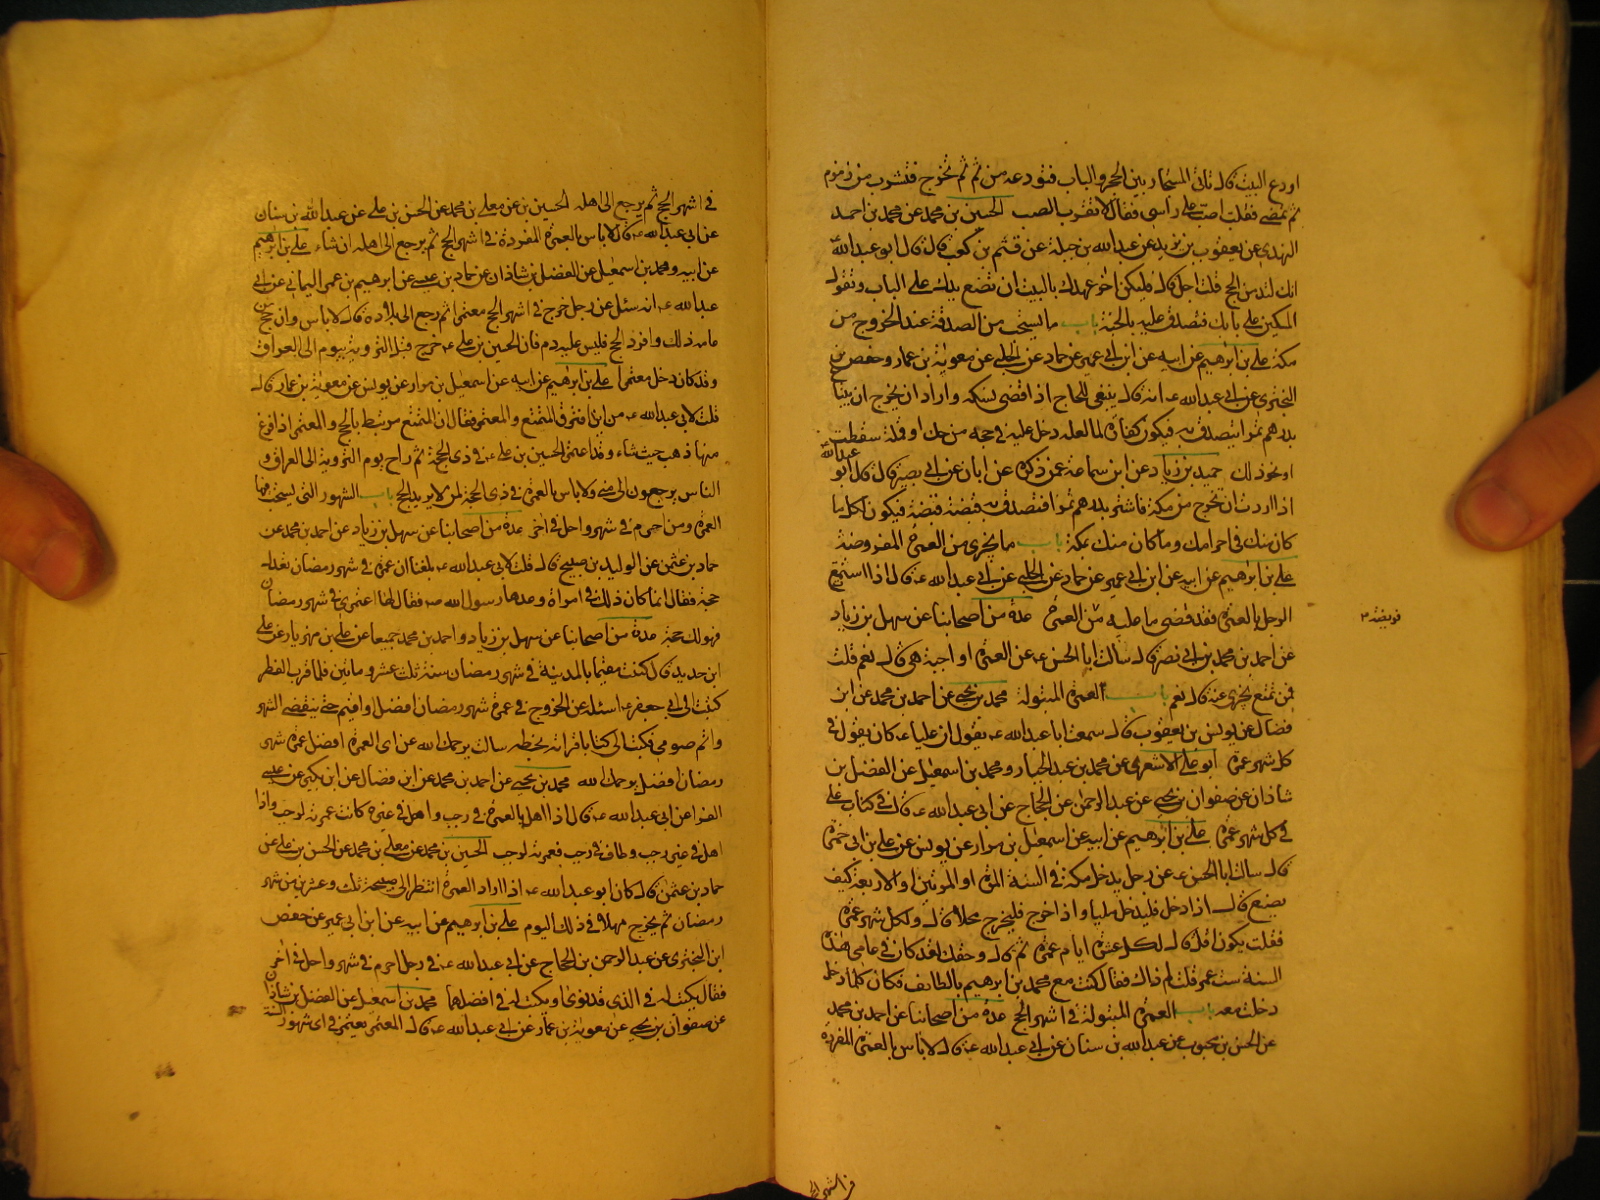 اودع البيت قال تاتى المستجار بين الحجر والباب فتودعه من ثم ثم تخرج فتشرب من زمزم
ثم تمضى فقلت اصب على راسى فقال لا تقرب الصب الحسين بن محمد عن محمد بن احمد
النهدى عن يعقوب بن يزيد عن عبدالله بن جبلة عن قثم بن كعب قال قال ابوعبدالله ع
انك لتدمن الحج قلت اجل قال فليكن اخر عهدك بالبيت ان تضع يدك على الباب وتقول
المسكين على بابك فتصدق عليه بالجنة باب ما يستحب من الصدقة عند الخروج من
مكة على بن ابرهيم عن ابيه عن ابن ابى عمير عن حماد عن الحلبى عن معوية بن عمار وحفص بن
البخترى عن ابى عبدالله ع انه قال ينبغى للحاج اذا قضى نسكه واراد ان يخرج ان يبتاع
بدرهم تمرا يتصدق به فيكون كفارة لما لعله دخل عليه فى حجه من حك او قملة سقطت
او نحو ذلك حميد بن زياد عن ابن سماعة عمن ذكره عن ابان عن ابى بصير قال قال ابو عبدالله
اذا اردت ان تخرج من مكة فاشتر بدرهم تمرا فتصدق به قبضة قبضة فيكون لكل ما
كان منك فى احرامك وما كان منك بمكة باب ما يجزى من العمرة المفروضة
على بن ابرهيم عن ابيه عن ابن ابى عمير عن حماد عن الحلبى عن ابى عبدالله ع قال اذا استمتع
الرجل بالعمرة فقد قضى ما عليه من العمرة عدة من اصحابنا عن سهل بن زياد
فريضة
عن احمد بن محمد بن ابى نصر قال سالت ابا الحسن ع عن العمرة اواجبة هى قال نعم قلت
فمن تمتع يجزى عنه قال نعم باب العمرة المبتولة محمد بن يحيى عن احمد بن محمد عن ابن
فضال عن يونس بن يعقوب قال سمعت ابا عبدالله ع يقول ان عليا ع كان يقول فى
كل شهر عمرة ابو على الاشعرى عن محمد بن عبد الجبار ومحمد بن اسمعيل عن الفضل بن
شاذان عن صفوان بن يحيى عن عبد الرحمن بن الحجاج عن ابى عبدالله ع قال فى كتاب على
فى كل شهر عمرة على بن ابرهيم عن ابيه عن اسمعيل بن مرار عن يونس عن على بن ابى حمزة
قال سالت ابا الحسن ع عن رجل يدخل مكة فى السنة المرة او المرتين او الاربعة كيف
يصنع قال اذا دخل فليدخل ملبيا واذا خرج فليخرج محلا قال ولكل شهر عمرة
فقلت يكون اقل قال لكل عشرة ايام عمرة ثم قال وحقك لقد كان فى عامى هذه
السنة ست عمر قلت لم ذاك فقال كنت مع محمد بن ابرهيم بالطايف فكان كلما دخل
دخلت معه باب العمرة المبتولة فى اشهر الحج عدة من اصحابنا عن احمد بن محمد
عن الحسن بن محبوب عن عبدالله بن سنان عن ابى عبدالله ع قال لا باس بالعمرة المفردة
فى اشهر الحج
فى اشهر الحج ثم يرجع الى اهله الحسين بن عن معلى بن محمد عن الحسن بن على عن عبدالله بن سنان
عن ابى عبدالله ع قال لا باس بالعمرة المفردة فى اشهر الحج ثم يرجع الى اهله ان شاء على بن ابرهيم
عن ابيه ومحمد بن اسمعيل عن الفضل بن شاذان عن حماد بن عيسى عن ابرهيم بن عمر اليمانى عن ابى
عبدالله ع انه سئل عن رجل خرج فى اشهر الحج معتمرا ثم رجع الى بلاده قال لا باس وان حج من
عامه ذلك وافرد الحج فليس عليه دم فان الحسين بن على ع خرج قبل التروية بيوم الى العراق
وقد كان دخل معتمرا على بن ابرهيم عن ابيه عن اسمعيل بن مرار عن يونس عن معوية بن عمار قال
قلت لابى عبدالله ع من اين افترق المتمتع والمعتمر فقال ان المتمتع مرتبط بالحج والمعتمر اذا فرغ
منها ذهب حيث شاء وقد اعتمر الحسين بن على ع فى ذى الحجة ثم راح يوم التروية الى العراق و
الناس يروحون الى منى ولا باس بالعمرة فى ذى الحجة لمن لا يريد الحج باب الشهور التى يستحب فيها
العمرة ومن احرم فى شهر واحل فى اخر عدة من اصحابنا عن سهل بن زياد عن احمد بن محمد عن
حماد بن عثمن عن الوليد بن صبيح قال قلت لابى عبدالله ع بلغنا ان عمرة فى شهر رمضان تعدل
حجة فقال انما كان ذلك فى امراة وعدها رسول الله ص فقال لها اعتمرى فى شهر رمضان
فهو لك حجة عدة من اصحابنا عن سهل بن زياد و احمد بن محمد جميعا عن على بن مهزيار عن على
ابن حديد قال كنت مقيما بالمدينة فى شهر رمضان سنة ثلث عشر ومايتين فلما قرب الفطر
كتبت الى ابى جعفر ع اسئله عن الخروج فى عمرة شهر رمضان افضل او اقيم حتى ينقضى الشهر
واتم صومى فكتب الى كتابا قراته بخطه سالت يرحمك الله عن اى العمرة افضل عمرة شهر
رمضان افضل يرحمك الله محمد بن يحيى عن احمد بن محمد عن ابن فضال عن ابن بكير عن عيسى
الفرا عن ابى عبدالله ع قال اذا اهل بالعمرة فى رجب واهل فى غيره كانت عمرته لرجب واذا
اهل فى غير رجب وطاف فى رجب فعمرته لرجب الحسين بن محمد عن معلى بن محمد عن الحسن بن على عن
حماد بن عثمن قال كان ابو عبدالله ع اذا اراد العمرة انتظر الى صبيحة ثلث وعشرين من شهر
رمضان ثم يخرج مهلا فى ذلك اليوم على بن ابرهيم عن ابيه عن ابن ابى عمير عن حفص
ابن البخترى عن عبد الرحمن بن الحجاج عن ابى عبدالله ع فى رجل احرم فى شهر واحل فى اخر
فقال يكتب له فى الذى قد نوى او يكتب له فى افضلهما محمد بن اسمعيل عن الفضل بن شاذان
عن صفوان بن يحيى عن معوية بن عمار عن ابى عبدالله ع قال المعتمر يعتمر فى اى شهور السنة